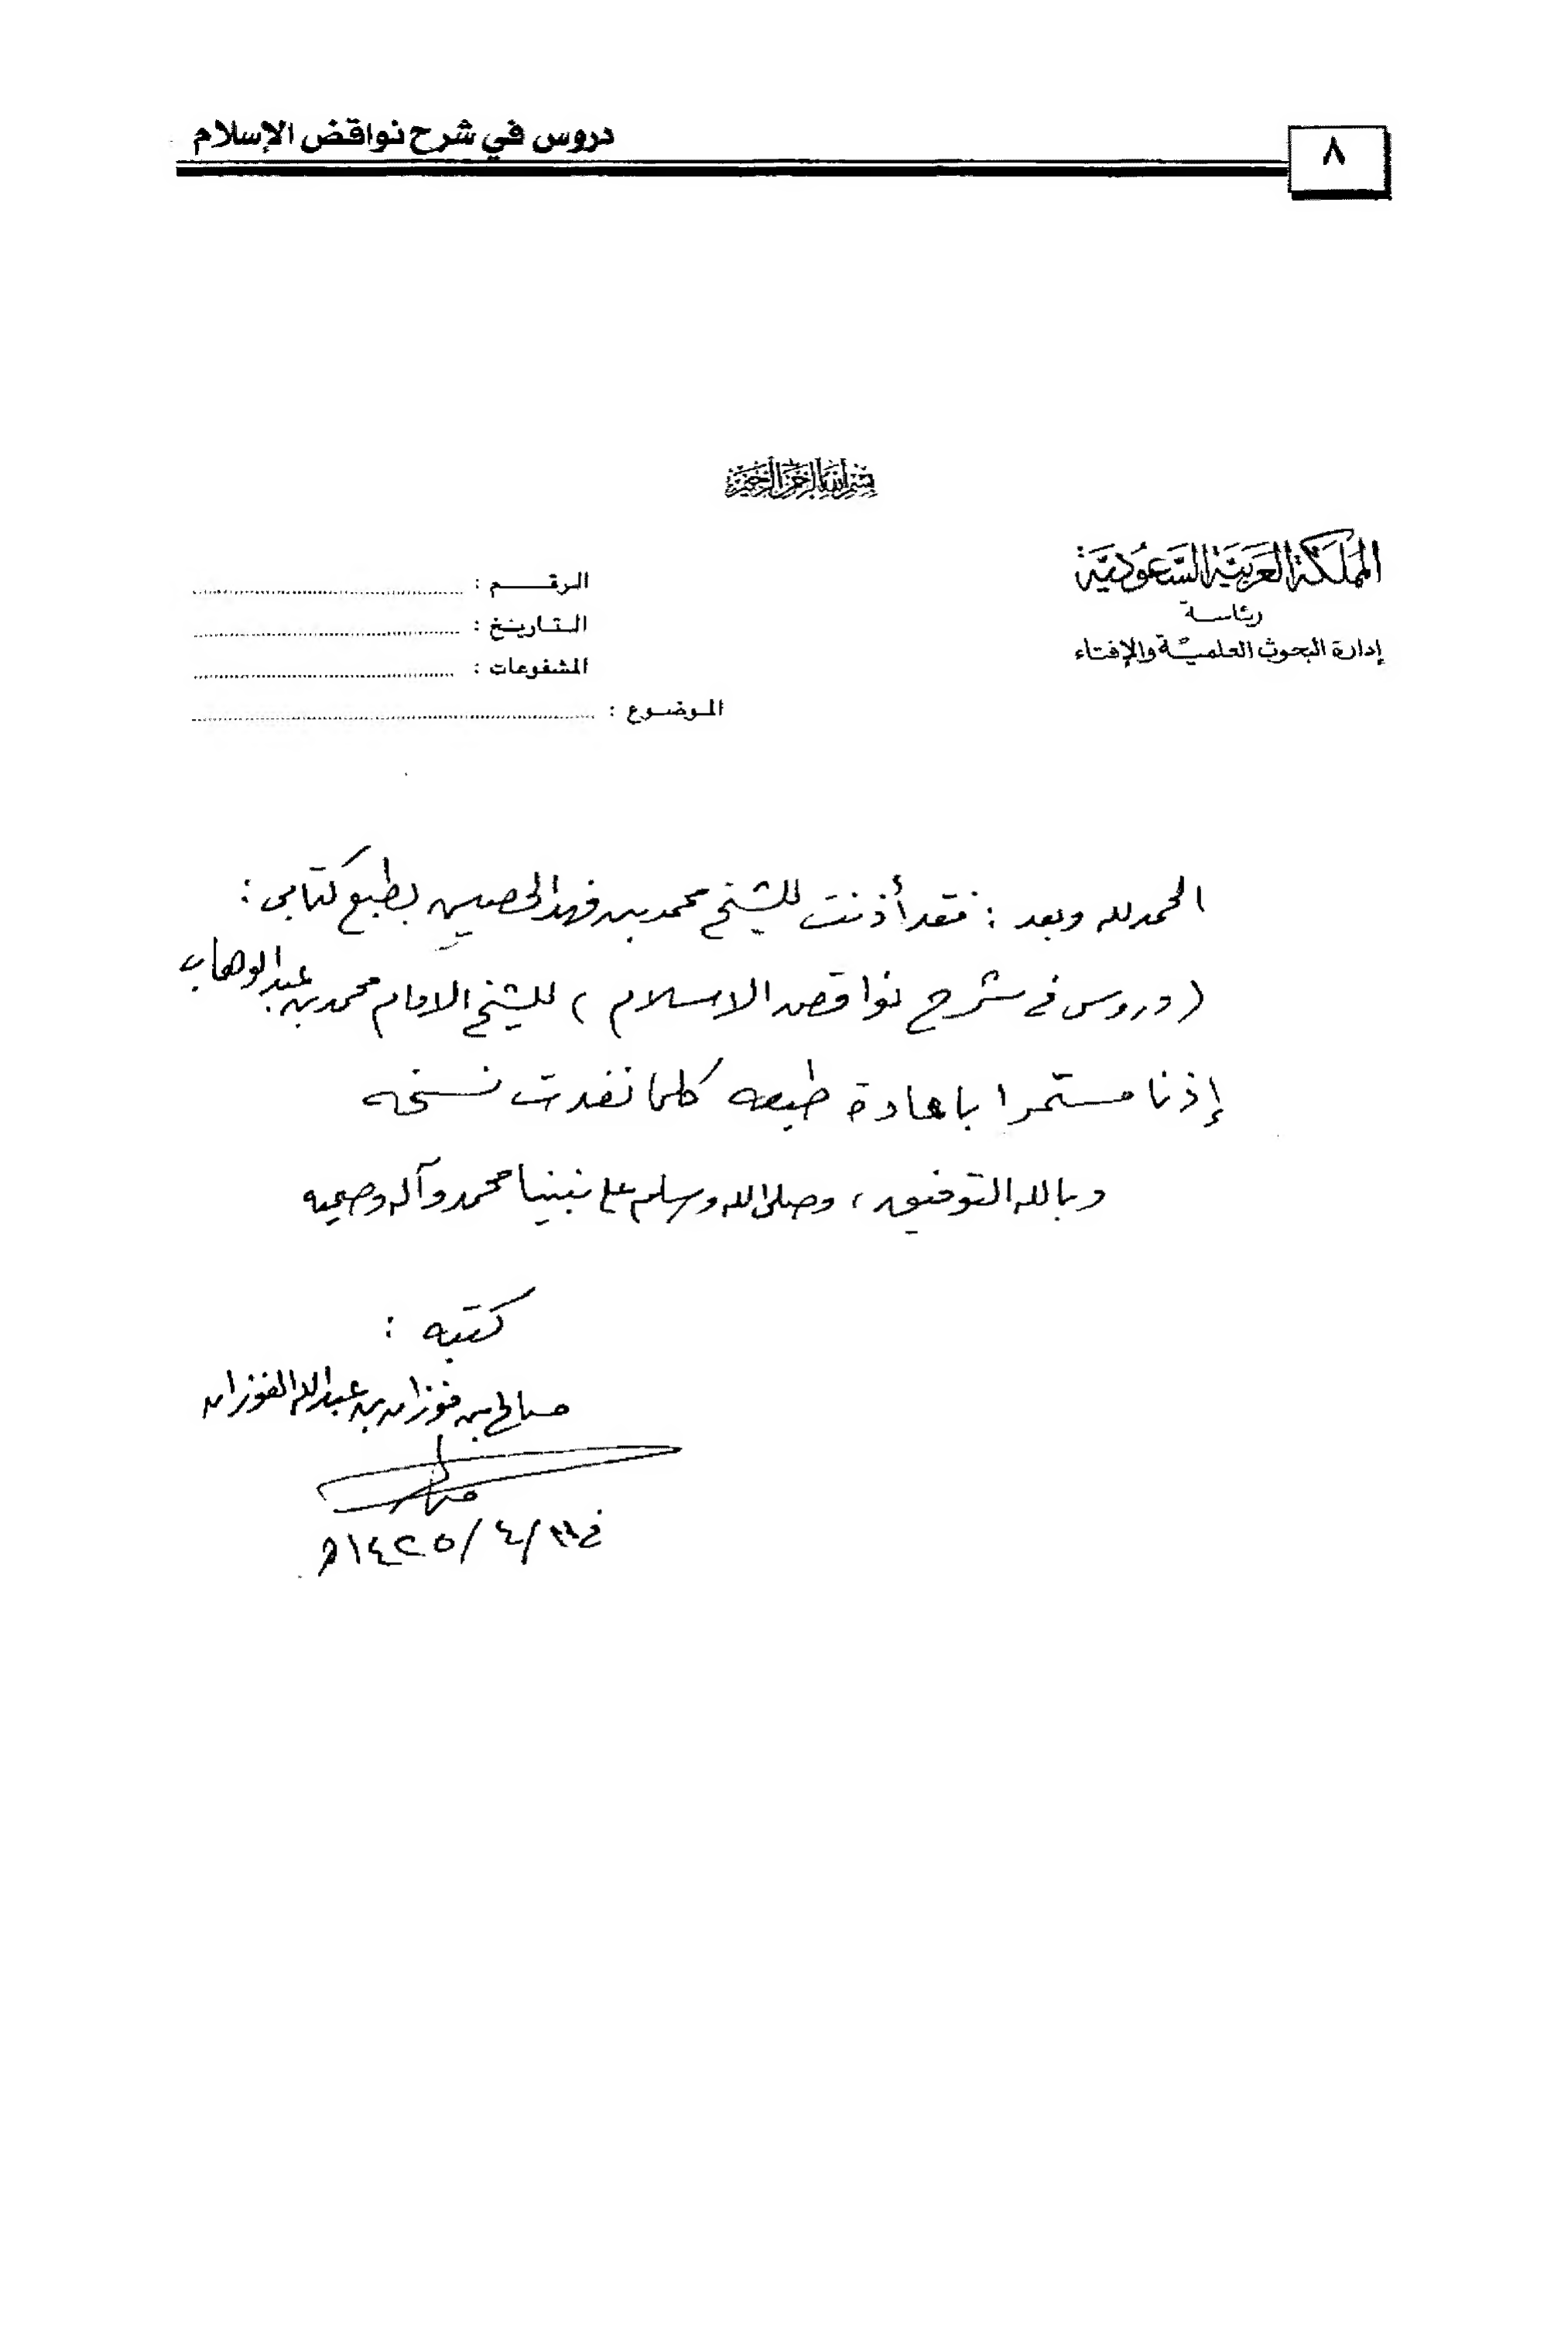 دروس في شرح نواقض الإسلام
٨
بسم الله الرحمن الرحيم
المملكة العربية السعودية
رئاسة
إدارة البحوث العلمية والإفتاء
الرقم :
التاريخ :
المشفوعات :
الموضوع :
الحمد لله وبعد : فقد أذنت للشيخ محمد بن فهد الحصين بطبع كتابي :
(دروس في شرح نواقض الاسلام) للشيخ الامام محمد بن عبد الوهاب
إذنا مستمرا باعادة طبعه كلما نفدت نسخه
وبالله التوفيق، وصلى الله وسلم على نبينا محمد وآله وصحبه
كتبه :
صالح بن فوزان بن عبد الله الفوزان
في /٤/١٤٢٥هـ